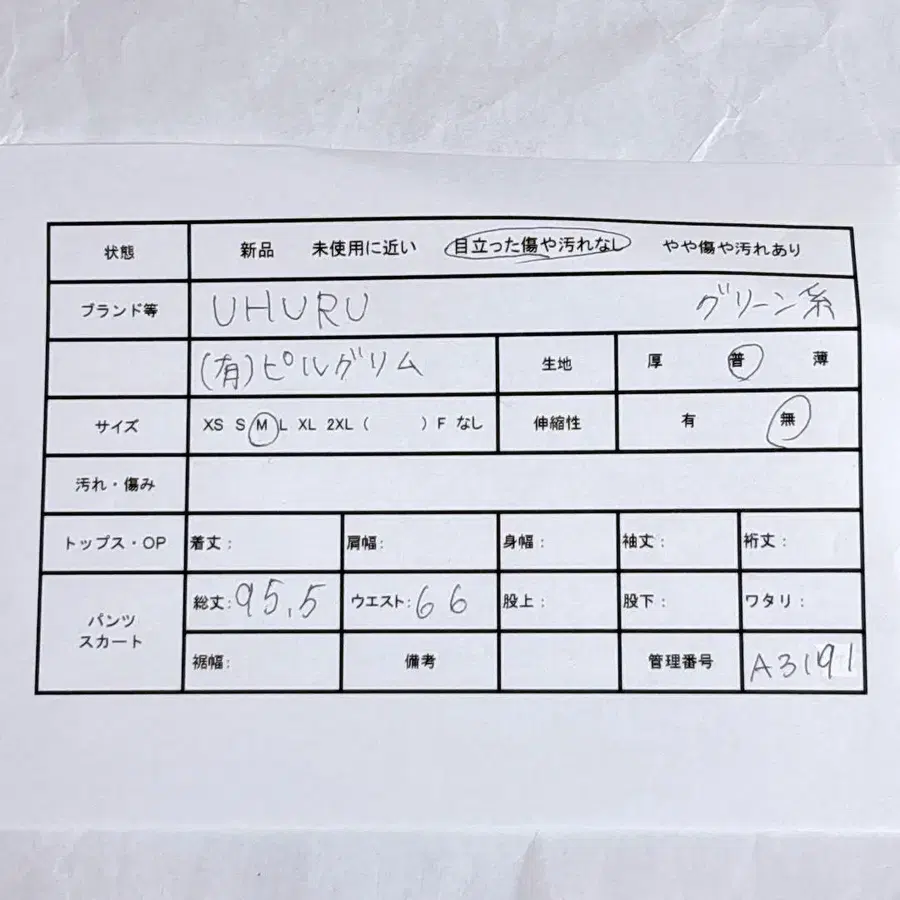 状態 新品 未使用に近い 目立った傷や汚れなし やや傷や汚れあり
ブランド等 UHURU グリーン系
(有)ピルグリム 生地 厚 普 薄
サイズ XS S M L XL 2XL ( ) F なし 伸縮性 有 無
汚れ・傷み
トップス・OP 着丈: 肩幅: 身幅: 袖丈: 裄丈:
パンツ スカート 総丈:95.5 ウエスト:66 股上: 股下: ワタリ:
裾幅: 備考 管理番号 A3191